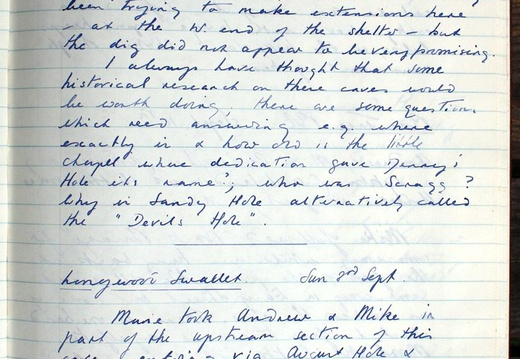 been trying to make extensions here
- at the W. end of the shelter - but
the dig did not appear to be very promising.
I always have thought that some
historical research on these caves would
be worth doing, there are some questions
which need answering e.g. where
exactly is & how old is the little
chapel whose dedication gave Denny's
Hole its name?; who was Scragg?
Why is Sandy Hole alternatively called
the "Devils Hole".
Longwood Swallet. Sun 3rd Sept.
Mune took Andrew & Mike in
part of the upstream section of this
via August Hole &